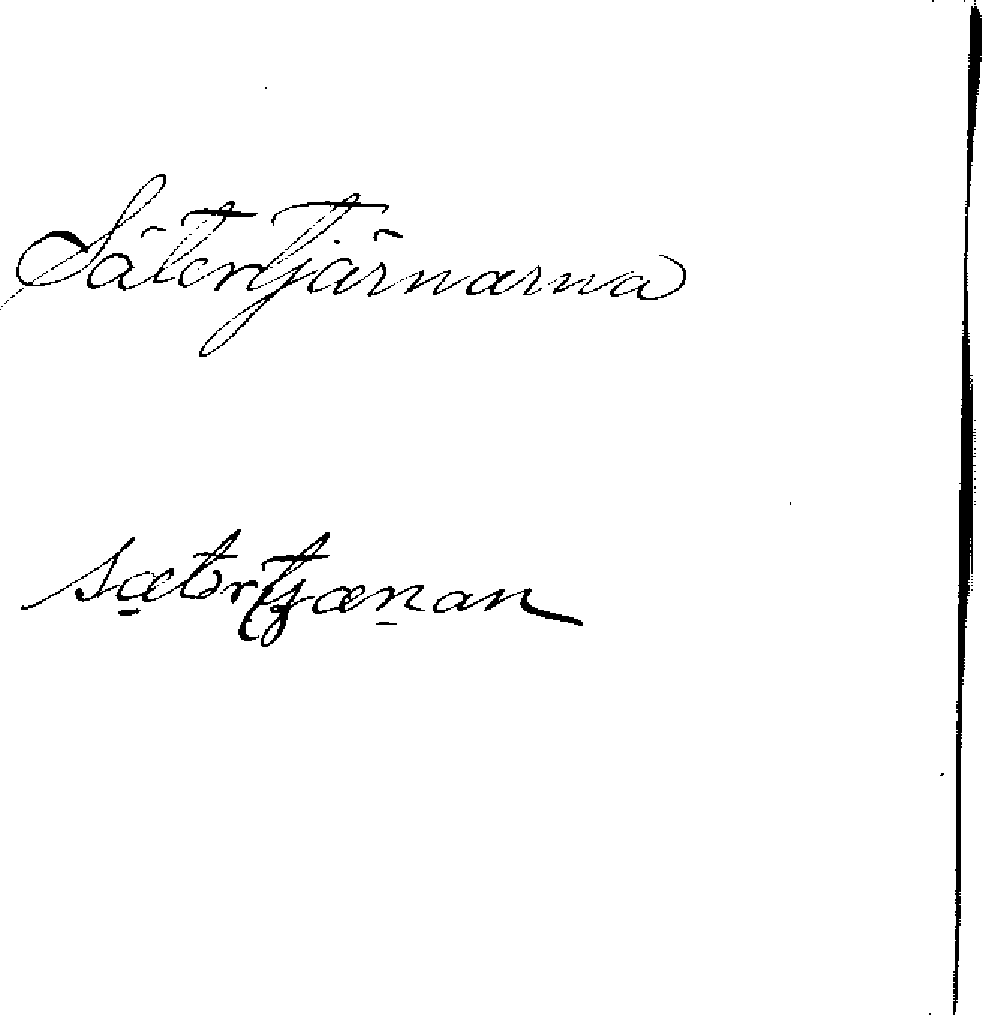 Sätertjärnarna
sætərtjænan